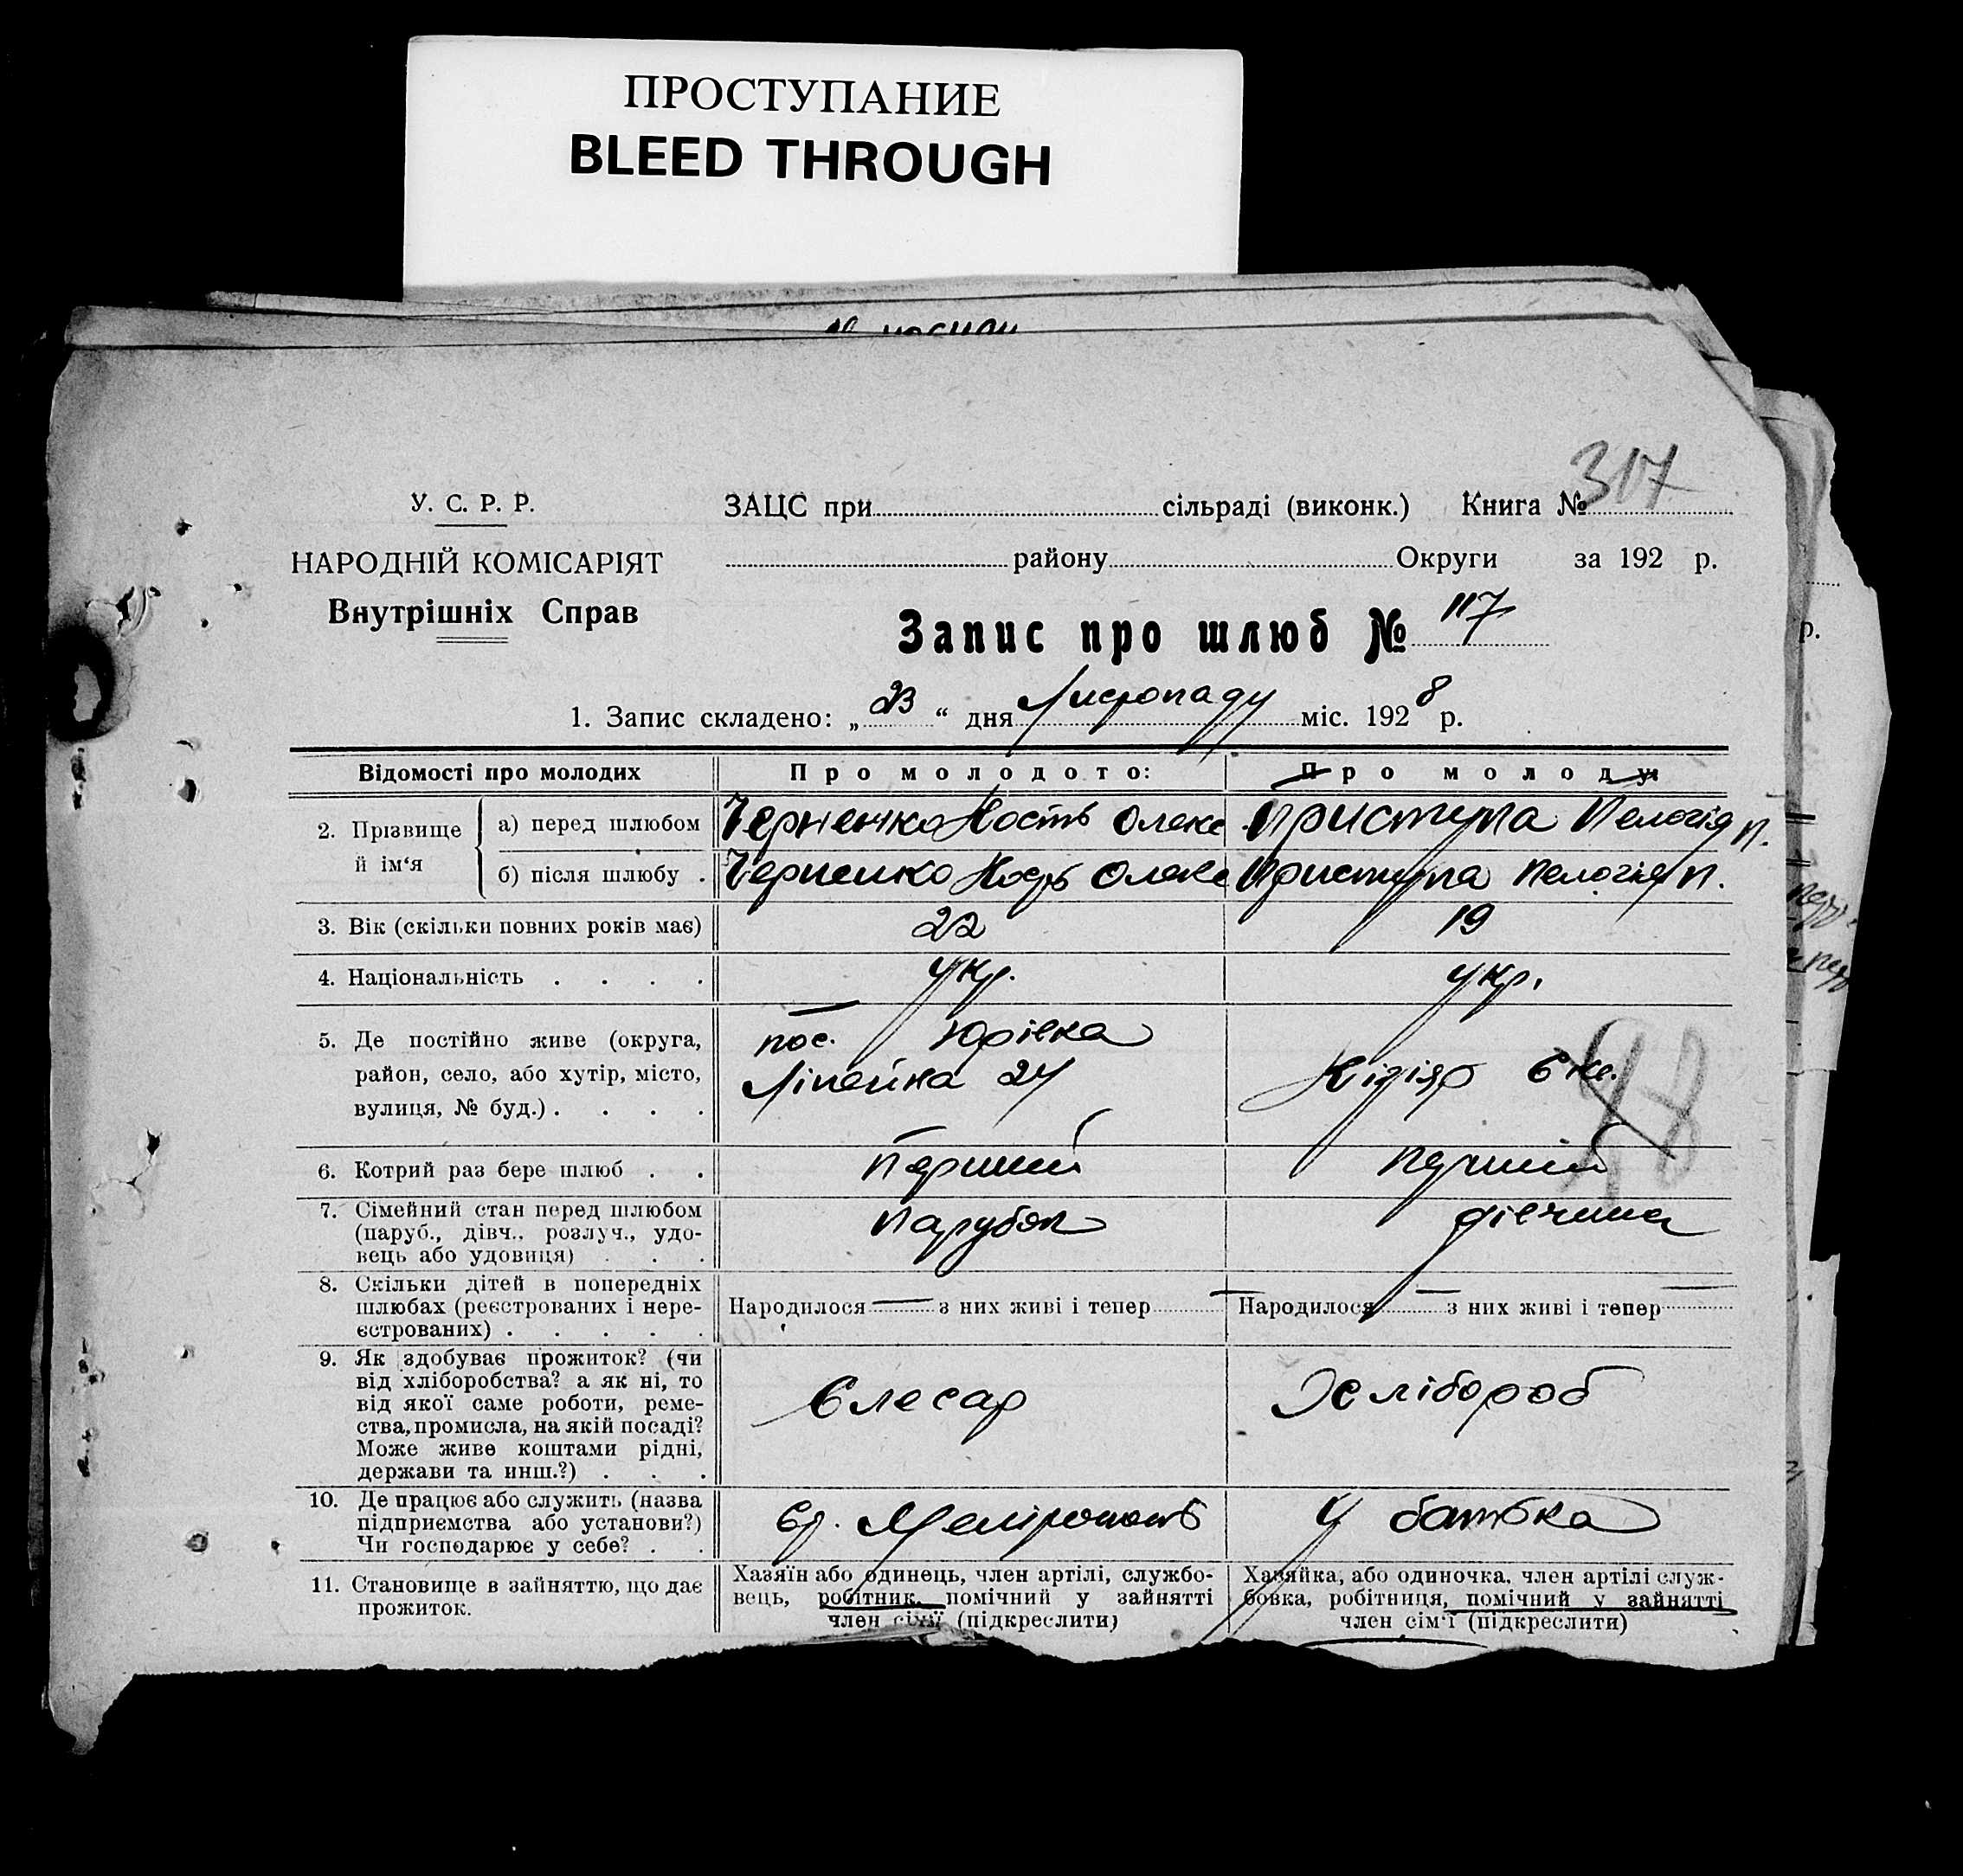 ПРОСТУПАНИЕ
BLEED THROUGH
317
У. С. Р. Р.
ЗАЦС при сільраді (виконк.) Книга №
НАРОДНІЙ КОМІСАРІЯТ
району Округи за 192 р.
Внутрішніх Справ
Запис про шлюб № 117
1. Запис складено: „23“ дня Листопаду міс. 1928 р.
Відомості про молодих
Про молодого:
Про молоду:
2. Прізвище й ім'я
а) перед шлюбом
Черненко Кость Олекс
Приступа Пелогія П.
б) після шлюбу .
Черненко Кость Олекс
Приступа Пелогія П.
3. Вік (скільки повних років має)
22
19
4. Національність . . . .
укр.
укр.
5. Де постійно живе (округа,
район, село, або хутір, місто,
вулиця, № буд.) . . . .
пос. Юрієка
Лінейна 24
98
6. Котрий раз бере шлюб . .
перший
перший
7. Сімейний стан перед шлюбом
(паруб., дівч., розлуч., удо-
вець або удовиця) . . .
парубок
дівчина
8. Скільки дітей в попередніх
шлюбах (реєстрованих і нере-
єстрованих) . . . . .
Народилося — з них живі і тепер —
Народилося — з них живі і тепер —
9. Як здобуває прожиток? (чи
від хліборобства? а як ні, то
від якої саме роботи, реме-
ства, промисла, на якій посаді?
Може живе коштами рідні,
держави та инш.?) . . .
Слесар
Хлібороб
10. Де працює або служить (назва
підприємства або установи?)
Чи господарює у себе? . .
ст. Меліпополь
У батька
11. Становище в зайняттю, що дає
прожиток.
Хазяїн або одинець, член артілі, службо-
вець, робітник, помічний у зайнятті
член сім'ї (підкреслити)
Хазяйка, або одиночка, член артілі служ-
бовка, робітниця, помічний у зайнятті
член сім'ї (підкреслити)
р.